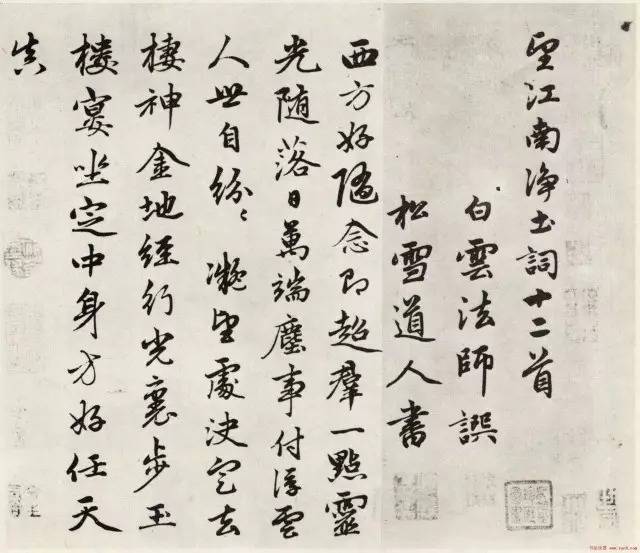 望江南淨土詞十二首
白雲法師譔
松雪道人書
西方好隨念即超羣一點靈
光随落日萬端塵事付浮雲
人世自紛〻凝望處決定去
棲神金地經行光裏步玉
樓宴坐定中身方好任天
真